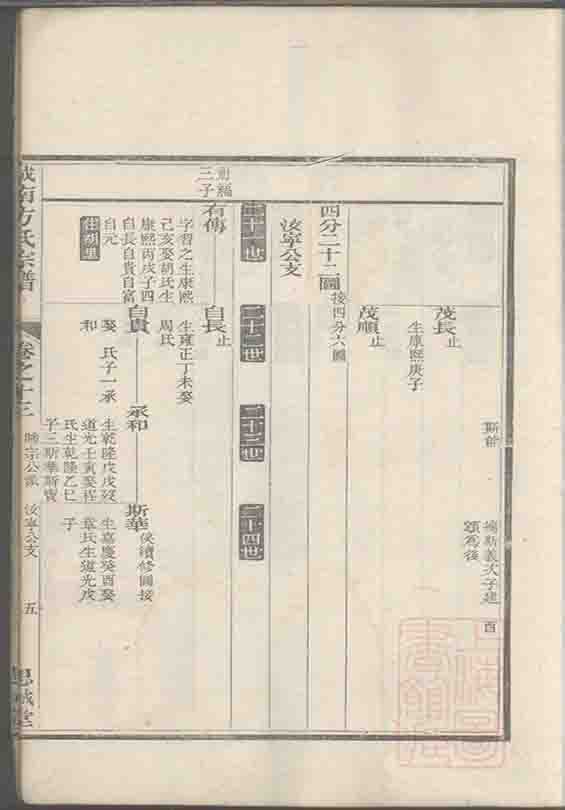 斯前
禠斯義次子建酉
頌為後
茂長止
生康熙庚子
茂順止
四分二十二圖接四分六圖
汝寧公支
二十一世
二十二世
二十三世
二十四世
三子
右傳
字習之生康熙
己亥娶胡氏生
康熙丙戌子四
自長自貴自富
自元
住胡里
自長止
生雍正丁未娶
周氏
自貴
娶 氏子一承
和
承和
生乾隆戊戌歿
道光壬寅娶程
氏生乾隆乙巳
子三斯華斯寶
斯華俟續修圖接
生嘉慶癸酉娶
章氏生道光戊
子
城南方氏宗譜
卷之十三
宗公派 汝寧公支 五
思誠堂